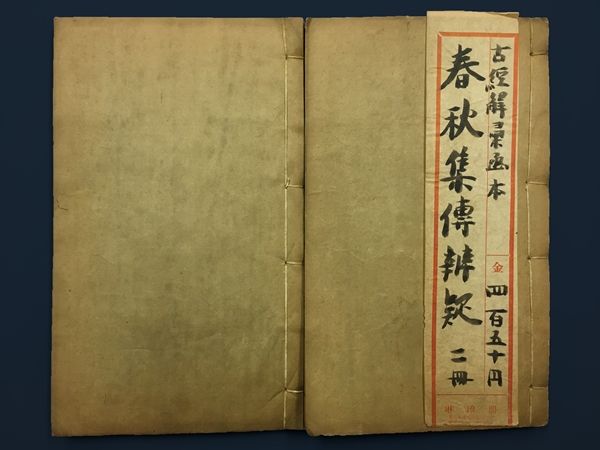 古經解彙函本
金 四百五十円
春秋集傳辨疑 二冊
琳琅閣